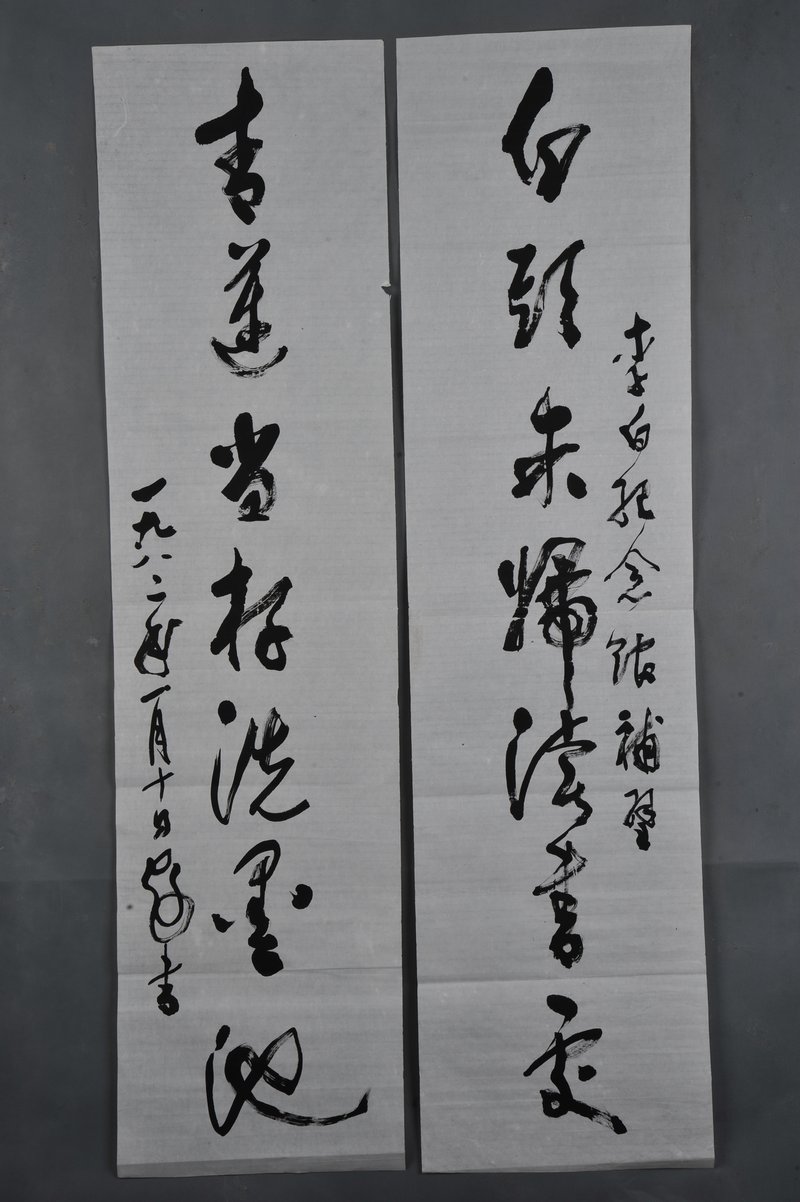 李白紀念館補壁
白頭未歸讀書處
青蓮尚存洗墨池
一九八二年一月十日書